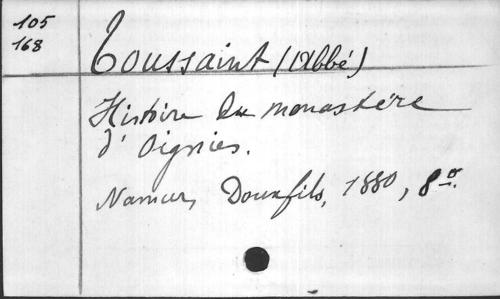 105
168
Toussaint (Abbé)
Histoire du monastère
d'Oignies.
Namur, Douxfils, 1880, 8º.